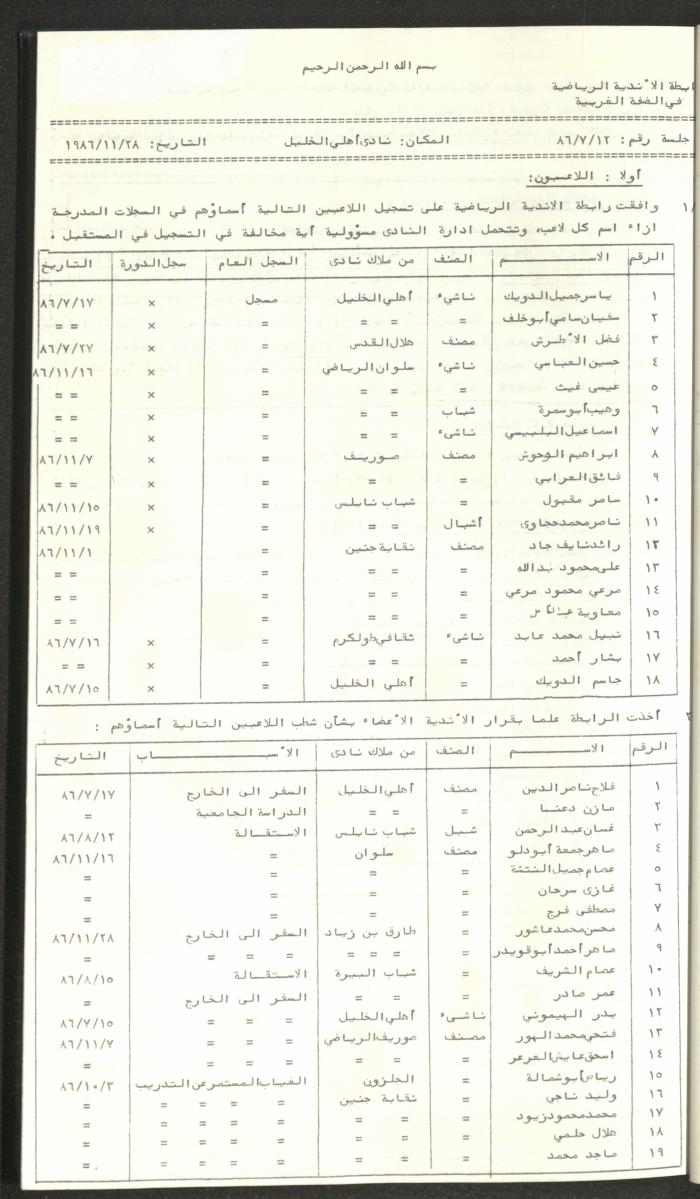 بسم الله الرحمن الرحيم
ابطة الأندية الرياضية
في الضفة الغربية
جلسة رقم: ٨٦/٧/١٢ المكان: نادى أهلي الخليل التاريخ: ١٩٨٦/١١/٢٨
أولا : اللاعبون:
١/ وافقت رابطة الاندية الرياضية على تسجيل اللاعبين التالية أسماؤهم في السجلات المدرجة
ازاء اسم كل لاعب، وتتحمل ادارة النادى مسؤولية أية مخالفة في التسجيل في المستقبل .
الرقم الاســـــم الصنف من ملاك نادى السجل العام سجل الدورة التاريخ
١ ياسر جميل الدويك ناشىء أهلي الخليل مسجل × ٨٦/٧/١٧
٢ سفيان سامي أبو خلف = = = = × = =
٣ فضل الأطرش مصنف هلال القدس = × ٨٦/٧/٢٧
٤ حسين العباسي ناشىء سلوان الرياضي = × ٨٦/١١/١٦
٥ عيسى غيث = = = = × = =
٦ وهيب أبو سمرة شباب = = = × = =
٧ اسماعيل البلبيسي ناشىء = = = × = =
٨ ابراهيم الوحوش مصنف صوريف = × ٨٦/١١/٧
٩ فائق العرابي = = = × = =
١٠ سامر مقبول = شباب نابلس = × ٨٦/١١/١٥
١١ ناصر محمد حجاوى أشبال = = = × ٨٦/١١/١٩
١٢ رائد نايف جاد مصنف نقابة جنين = ٨٦/١١/١
١٣ على محمود عبدالله = = = = = =
١٤ مرعي محمود مرعي = = = = = =
١٥ معاوية = = = = = =
١٦ نبيل محمد عابد ناشىء ثقافي طولكرم = × ٨٦/٧/١٦
١٧ بشار أحمد = = = = × = =
١٨ جاسم الدويك = أهلي الخليل = × ٨٦/٧/١٥
٢ أخذت الرابطة علما بقرار الأندية الأعضاء بشأن شطب اللاعبين التالية أسماؤهم :
الرقم الاســـــم الصنف من ملاك نادى الأســـــباب التاريخ
١ فلاح ناصر الدين مصنف أهلي الخليل السفر الى الخارج ٨٦/٧/١٧
٢ مازن دعنا = = = الدراسة الجامعية =
٣ غسان عبد الرحمن شبل شباب نابلس الاستقالة ٨٦/٨/١٢
٤ ماهر جمعة أبو دلو مصنف سلوان = ٨٦/١١/١٦
٥ عصام جميل النتشة = = = =
٦ غازى سرحان = = = =
٧ مصطفى فرج = = = =
٨ محسن محمد عاشور = طارق بن زياد السفر الى الخارج ٨٦/١١/٢٨
٩ ماهر أحمد أبو قويدر = = = = = = = =
١٠ عصام الشريف = شباب البيرة الاستقالة ٨٦/٨/١٥
١١ عمر صادر = = = السفر الى الخارج =
١٢ بدر الهيموني ناشىء أهلي الخليل = = = ٨٦/٧/١٥
١٣ فتحي محمد الهور مصنف صوريف الرياضي = = = ٨٦/١١/٧
١٤ اسحق عايش العرعر = = = = = = =
١٥ رياض أبو شمالة = الجلزون الغياب المستمر عن التدريب ٨٦/١٠/٣
١٦ وليد ناجي = نقابة جنين = = = = =
١٧ محمد محمود زيود = = = = = = = =
١٨ هلال حلمي = = = = = = = =
١٩ ماجد محمد = = = = = = = =